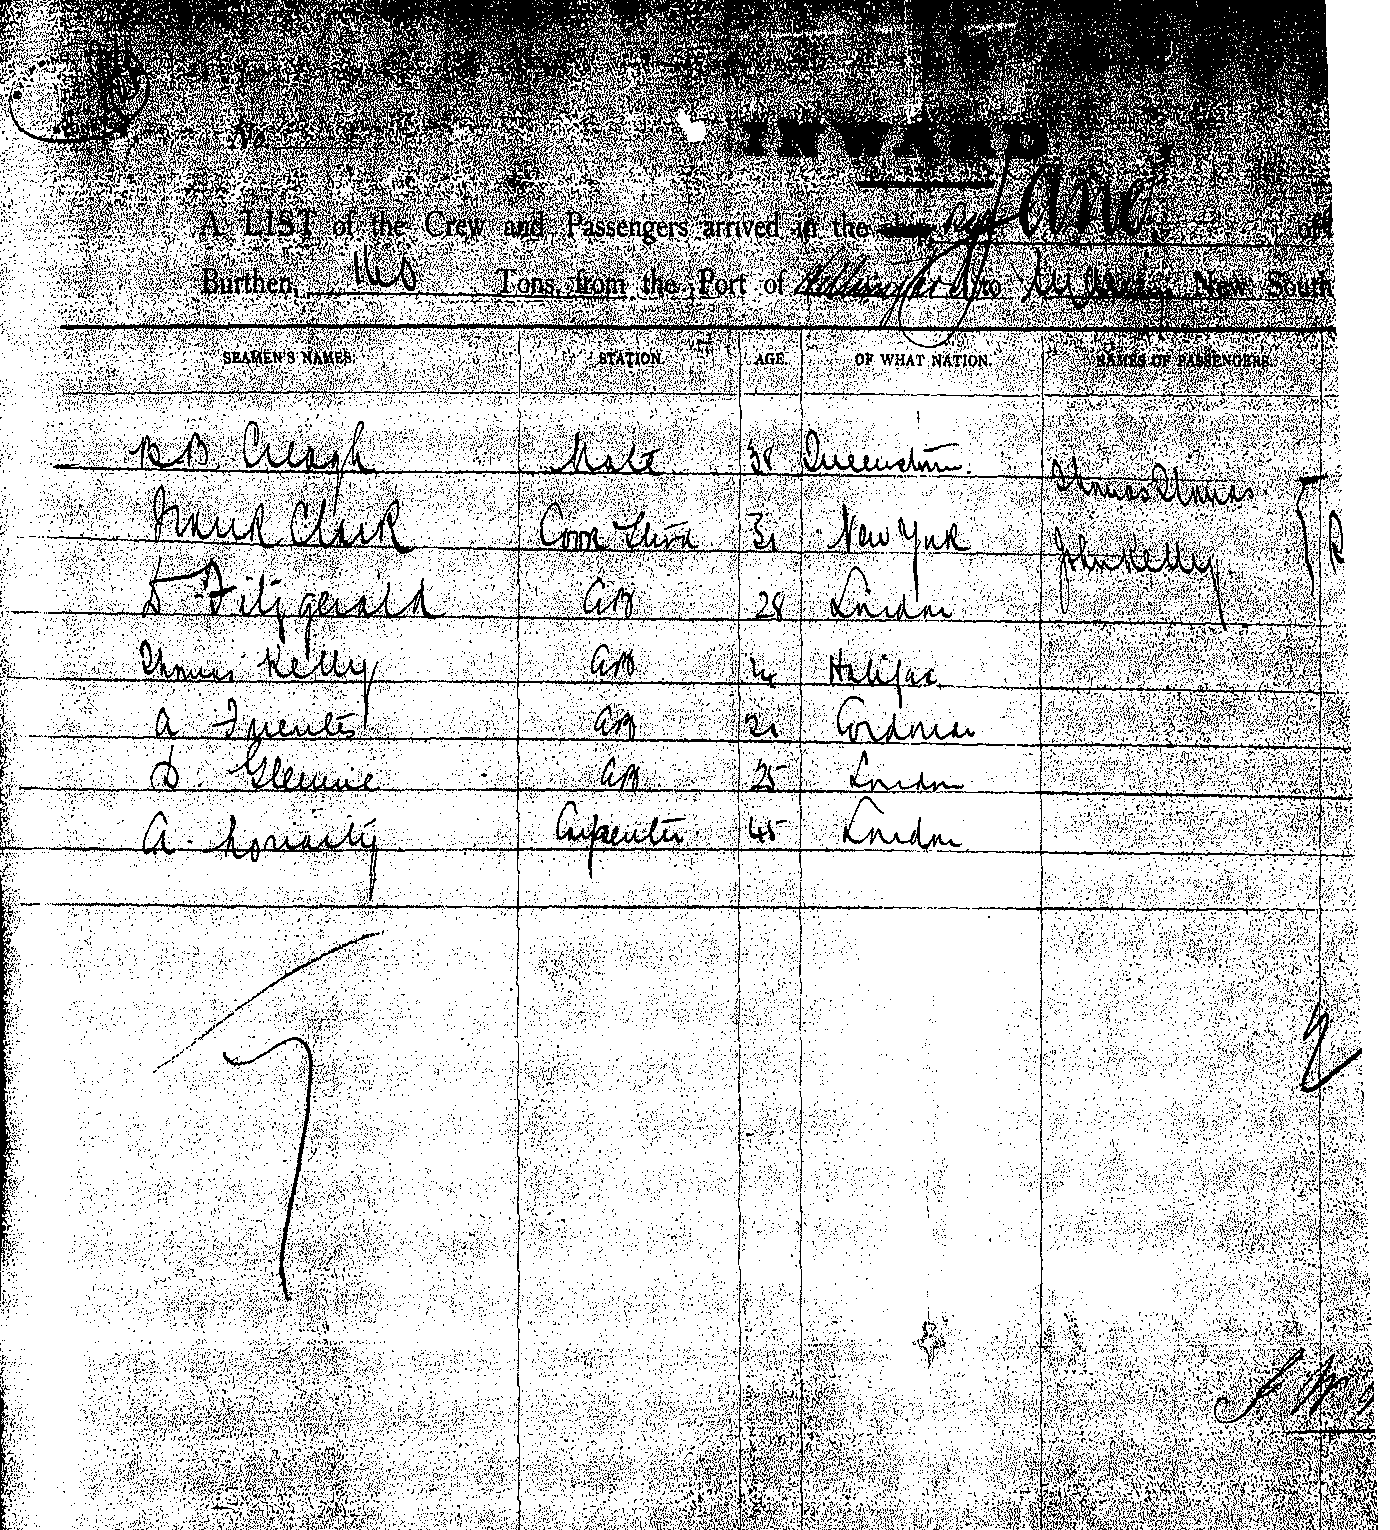 No.
INWARD
A LIST of the Crew and Passengers arrived in the Ship Brigt Jane of
Burthen, 160 Tons, from the Port of to Sydney, New South
SEAMEN'S NAMES. STATION. AGE. OF WHAT NATION. NAMES OF PASSENGERS.
B B Creagh Mate 38 Queenstown. Thomas Thomas
Frank Clark Cook & Stewd 31 New York John Kelly
D Fitzgerald AB 28 London
Thomas Kelly AB Halifax
A Fuentes AB 21
D. Glennie AB 25 London
A. Moriarty Carpenter 45 London
7
2
J W